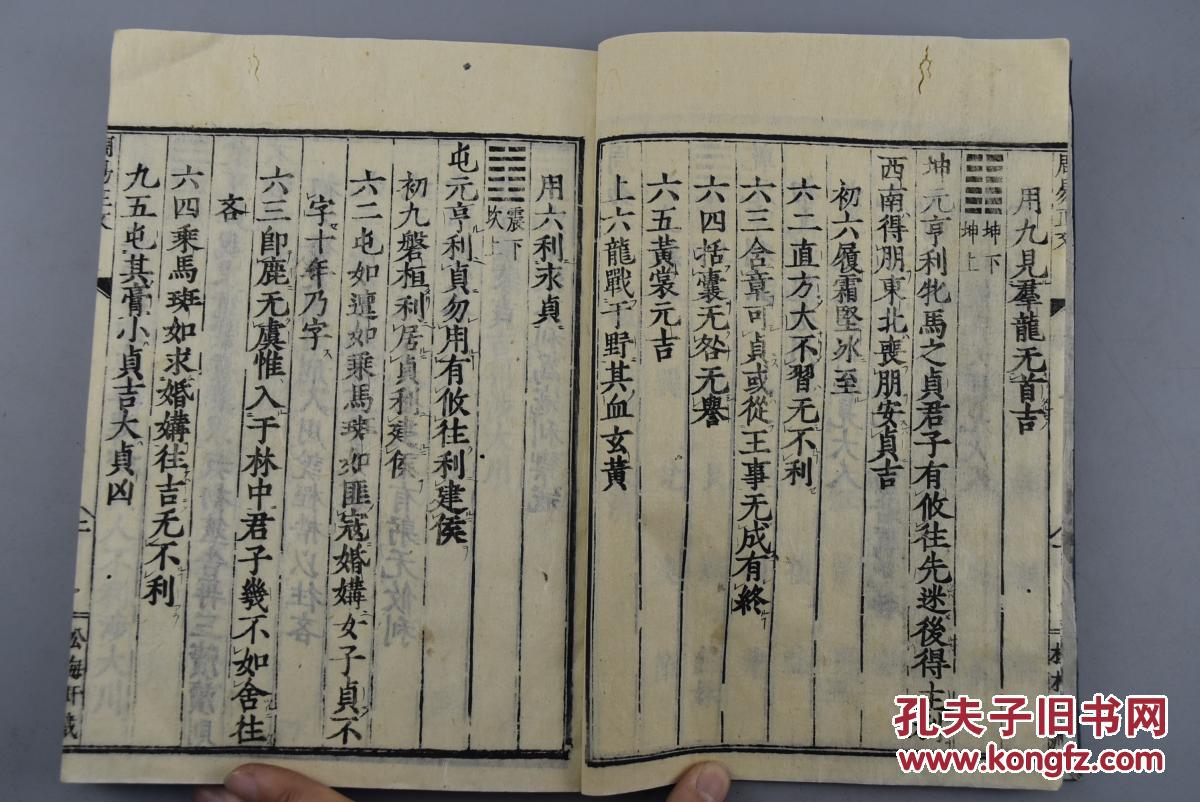 用九見羣龍无首吉
坤下
坤上
坤元亨利牝馬之貞君子有攸往先迷後得主
西南得朋東北喪朋安貞吉
初六履霜堅冰至
六二直方大不習无不利
六三含章可貞或從王事无成有終
六四括囊无咎无譽
六五黃裳元吉
上六龍戰于野其血玄黃
用六利永貞
震下
坎上
屯元亨利貞勿用有攸往利建侯
初九磐桓利居貞利建侯
六二屯如邅如乘馬班如匪寇婚媾女子貞不
字十年乃字
六三卽鹿无虞惟入于林中君子幾不如舍往
吝
六四乘馬班如求婚媾往吉无不利
九五屯其膏小貞吉大貞凶
二
松梅軒藏
孔夫子旧书网
www.kongfz.com